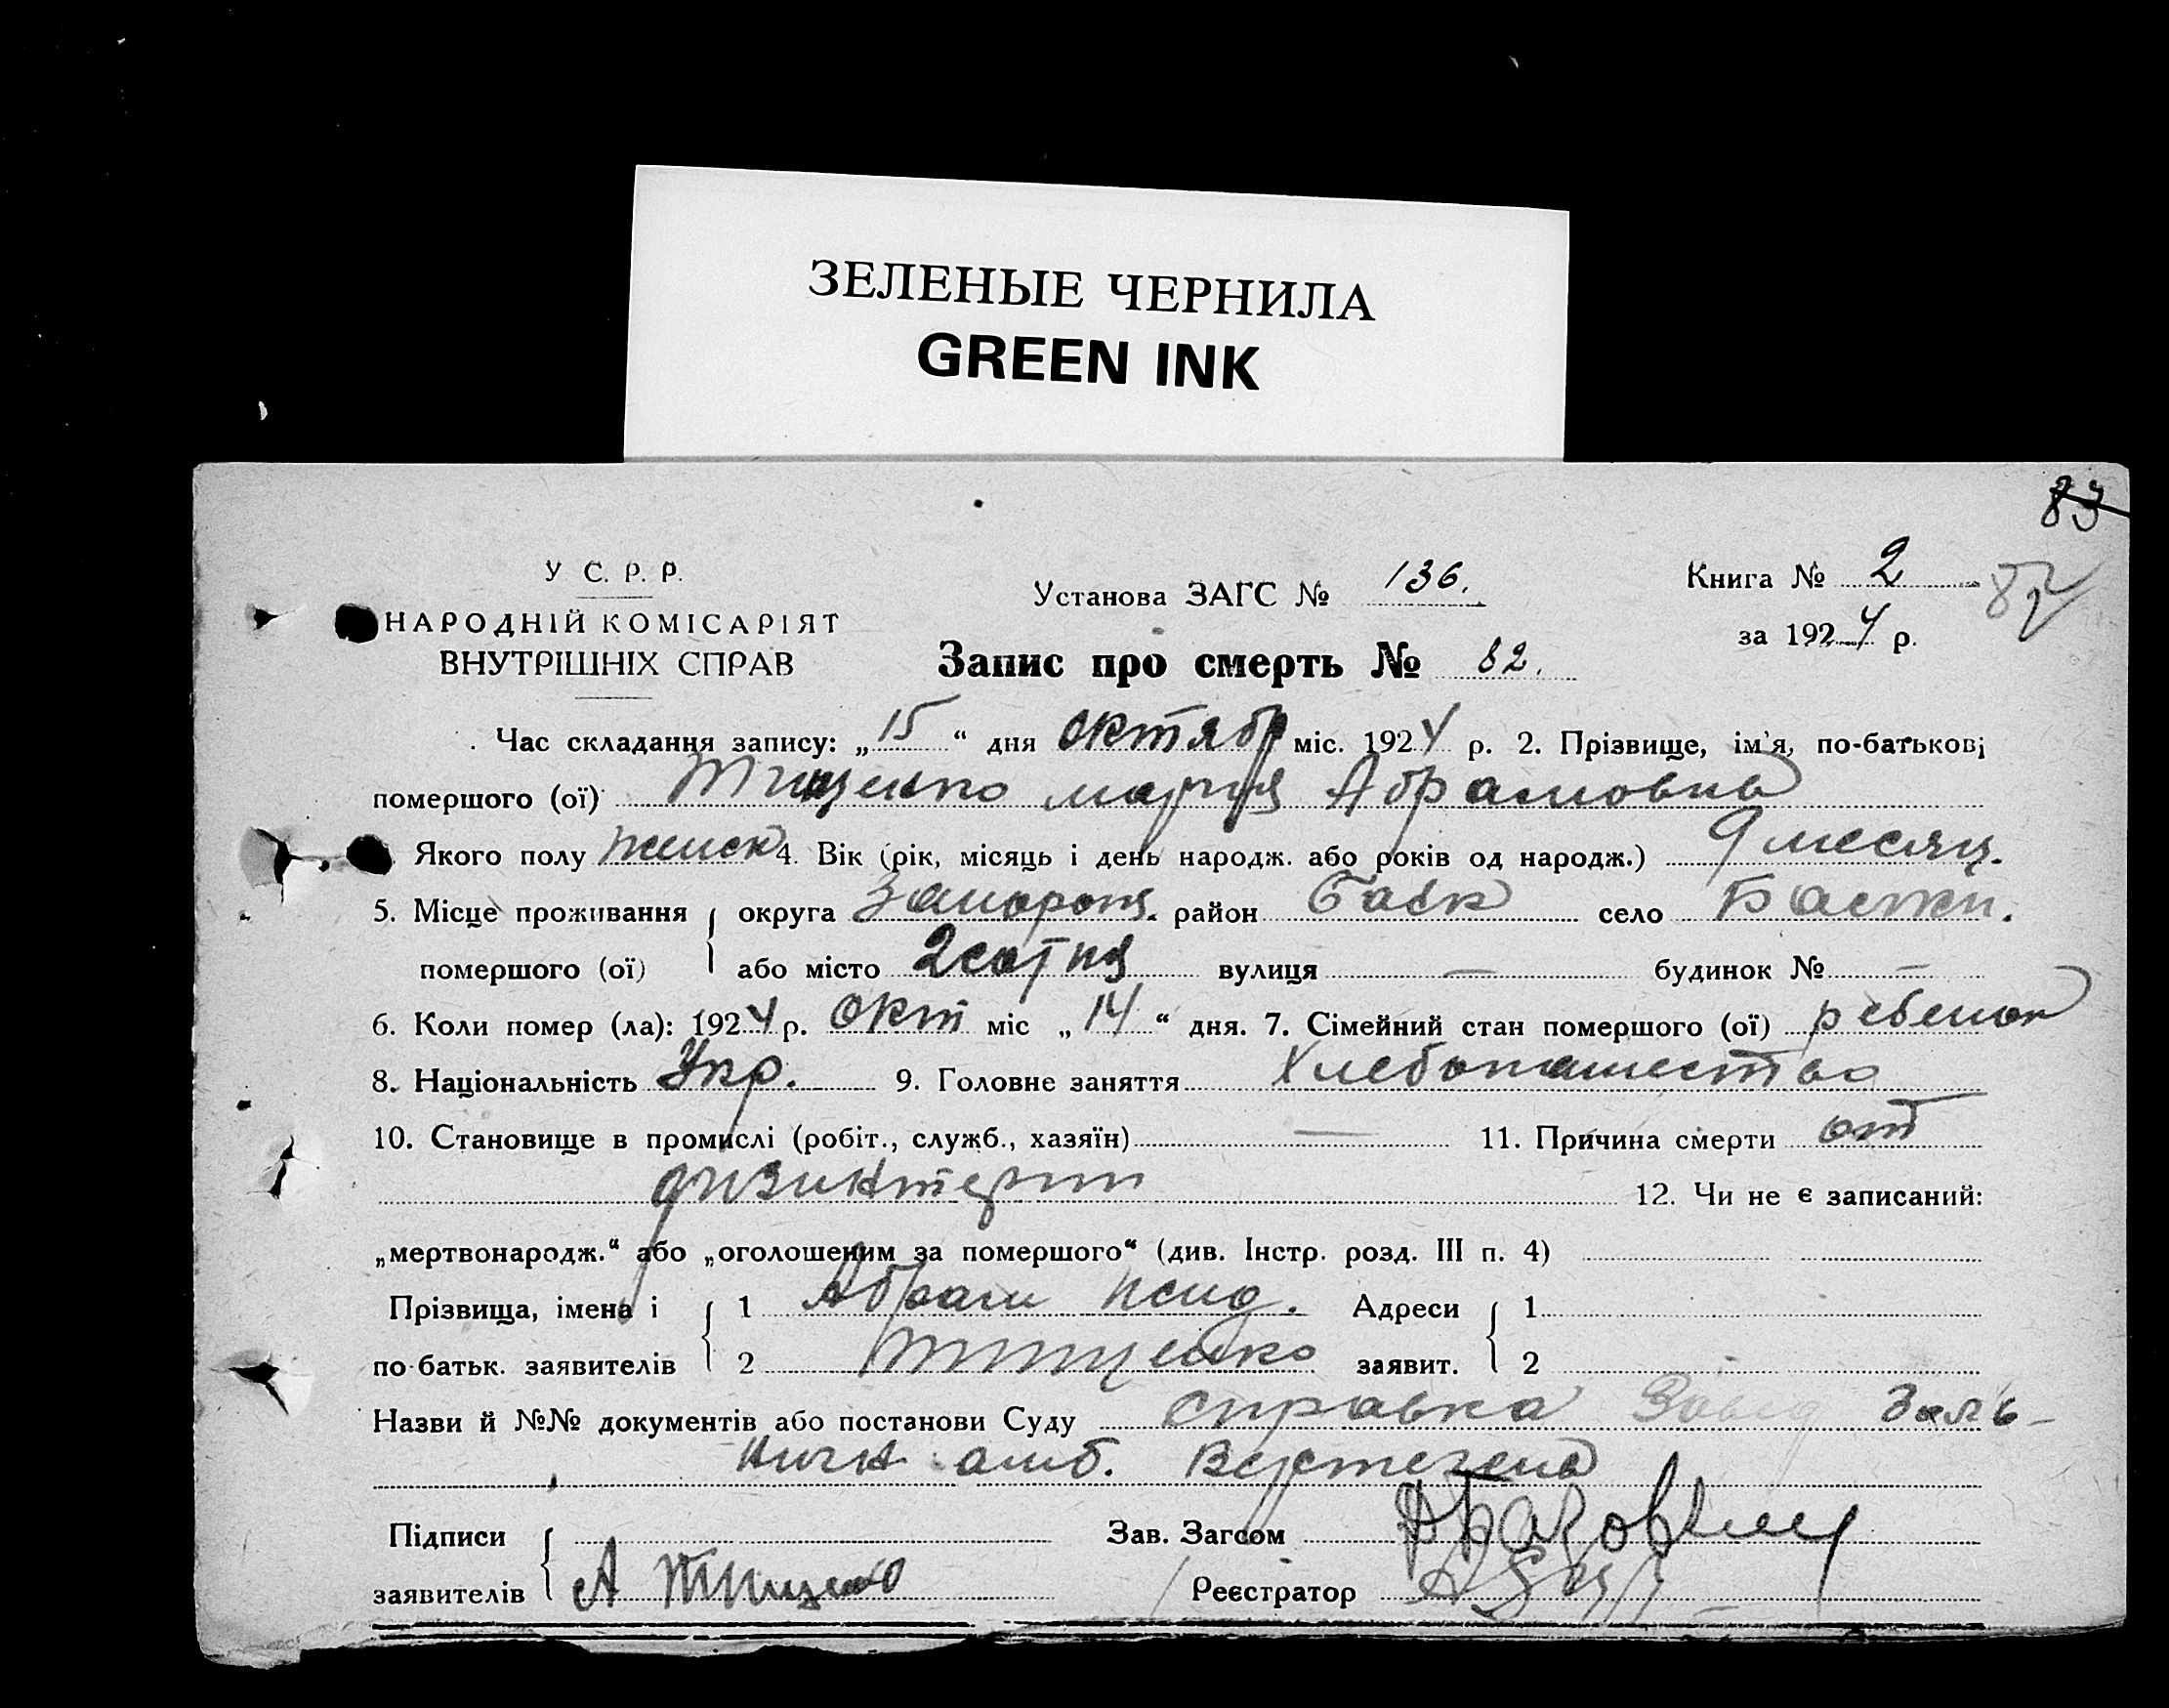 ЗЕЛЕНЫЕ ЧЕРНИЛА
GREEN INK
83
У С. Р. Р.
НАРОДНІЙ КОМІСАРІЯТ
ВНУТРІШНІХ СПРАВ
Установа ЗАГС № 136.
Книга № 2
за 1924 р.
Запис про смерть № 82.
Час складання запису: „15“ дня октябр міс. 1924 р. 2. Прізвище, ім'я, по-батькові
помершого (ої) Тищенко мария Абрамовна
Якого полу женск 4. Вік (рік, місяць і день народж. або років од народж.) 9 месяц.
5. Місце проживання округа Запорож. район село
помершого (ої) або місто 2 сотня вулиця — будинок № —
6. Коли помер (ла): 1924 р. Окт міс „14“ дня. 7. Сімейний стан помершого (ої) ребенок
8. Національність Укр. 9. Головне заняття Хлебопашество
10. Становище в промислі (робіт., служб., хазяїн) — 11. Причина смерти от
дизинтерии 12. Чи не є записаний:
„мертвонародж.“ або „оголошеним за помершого“ (див. Інстр. розд. III п. 4)
Прізвища, імена і 1 Абрам Адреси 1
по-батьк. заявителів 2 Тищенко заявит. 2
Назви й №№ документів або постанови Суду справка
амб.
Підписи Зав. Загсом
заявителів А Тищенко Реєстратор